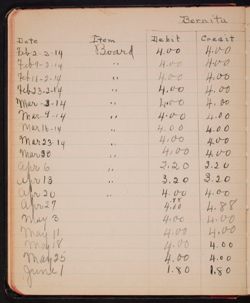 Bernita
Date Item Debit Credit
Feb 2-3-14 Board 4.00 4.00
Feb 9-2-14 " 4.00 4.00
Feb 11-2-14 " 4.00 4.00
Feb 23-2-14 " 4.00 4.00
Mar -3-14 " 4.00 4.00
Mar 9-14 " 4.00 4.00
Mar 16-14 " 4.00 4.00
Mar 23-14 " 4.00 4.00
Mar 30 " 4.00 4.00
Apr 6 " 2.20 2.20
Apr 13 " 3.20 3.20
Apr 20 " 4.00 4.00
Apr 27 4.88
May 3 4.00 4.00
May 11 4.00 4.00
May 18 4.00 4.00
May 25 4.00 4.00
June 1 1.80 1.80